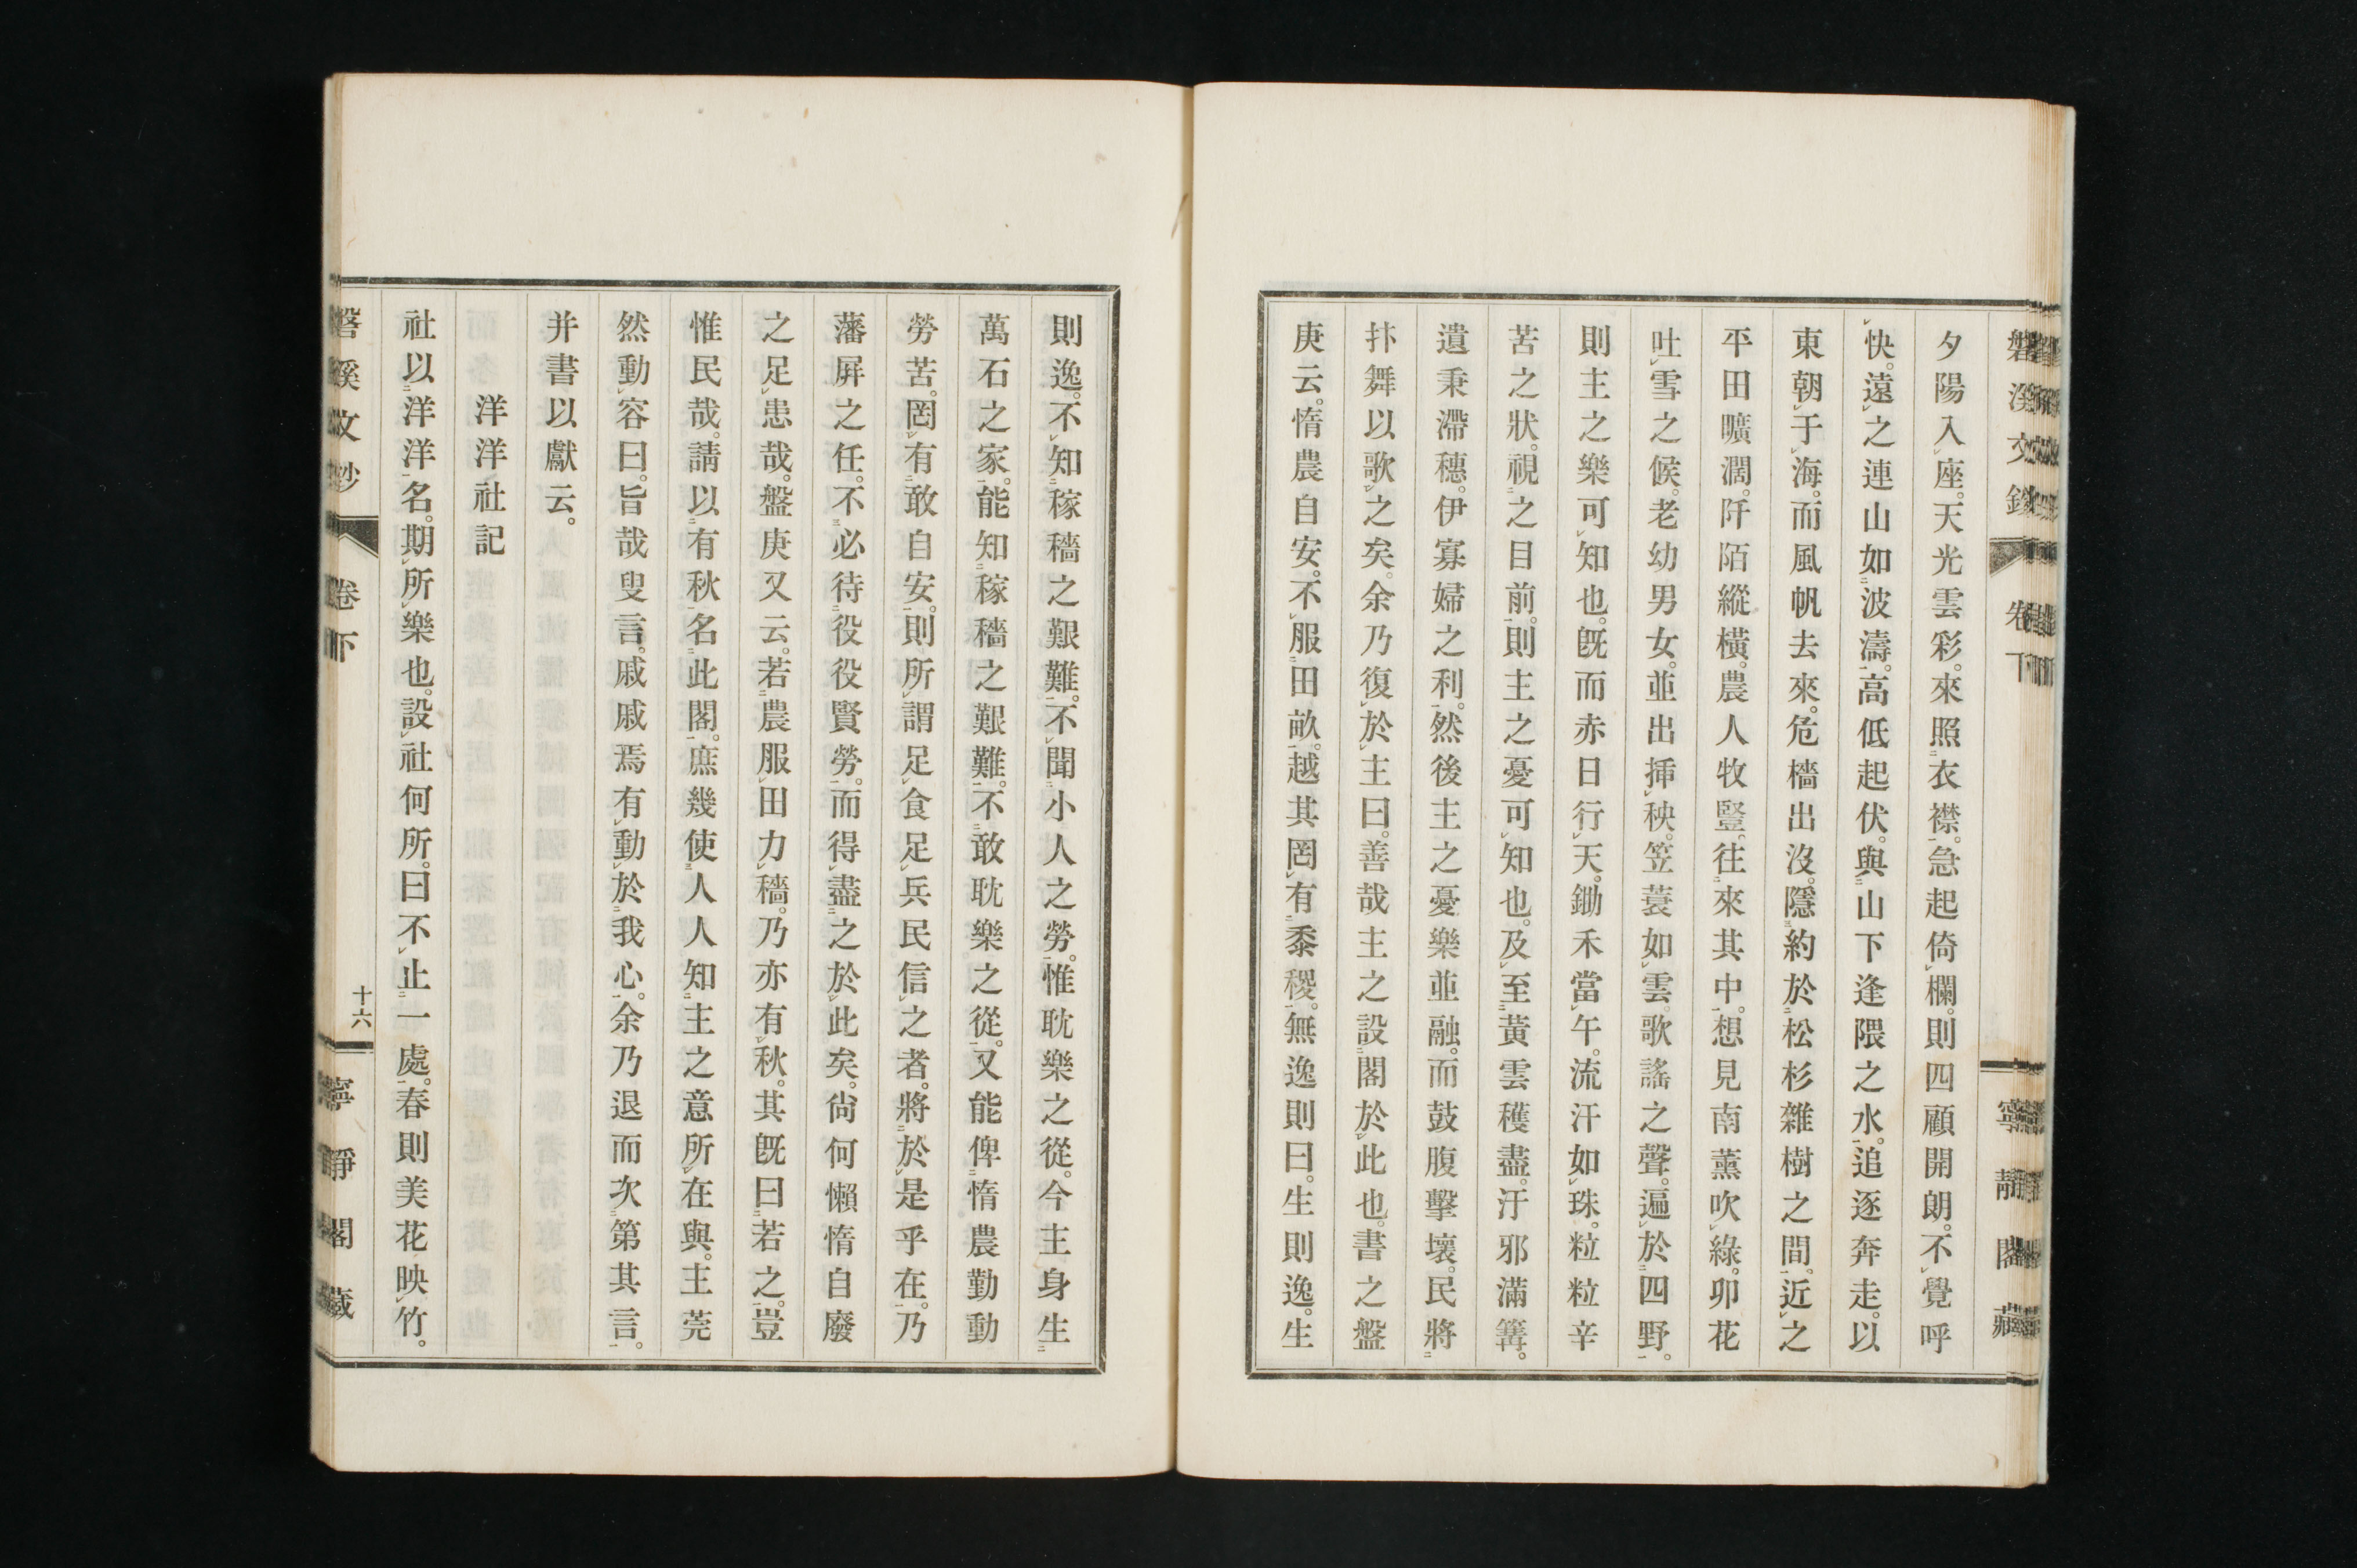 磐溪文鈔 卷下 寧靜閣藏
夕陽入座。天光雲彩。來照衣襟。急起倚欄。則四顧開朗。不覺呼
快。遠之連山如波濤。高低起伏。與山下逢隈之水。追逐奔走。以
東朝于海。而風帆去來。危檣出沒。隱約於松杉雜樹之間。近之
平田曠濶。阡陌縱橫。農人牧豎。往來其中。想見南薰吹綠。卯花
吐雪之候。老幼男女。並出揷秧。笠蓑如雲。歌謠之聲。遍於四野。
則主之樂可知也。旣而赤日行天。鋤禾當午。流汗如珠。粒粒辛
苦之狀。視之目前。則主之憂可知也。及至黃雲穫盡。汙邪滿篝。
遺秉滯穗。伊寡婦之利。然後主之憂樂並融。而鼓腹擊壤。民將
抃舞以歌之矣。余乃復於主曰。善哉主之設閣於此也。書之盤
庚云。惰農自安。不服田畝。越其罔有黍稷。無逸則曰。生則逸。生
則逸。不知稼穡之艱難。不聞小人之勞。惟耽樂之從。今主身生
萬石之家。能知稼穡之艱難。不敢耽樂之從。又能俾惰農勤動
勞苦。罔有敢自安。則所謂足食足兵民信之者。將於是乎在。乃
藩屏之任。不必待役役賢勞。而得盡之於此矣。尙何懶惰自廢
之足患哉。盤庚又云。若農服田力穡。乃亦有秋。其旣曰若之。豈
惟民哉。請以有秋名此閣。庶幾使人人知主之意所在與。主莞
然動容曰。旨哉叟言。戚戚焉有動於我心。余乃退而次第其言。
并書以獻云。
洋洋社記
社以洋洋名。期所樂也。設社何所。曰不止一處。春則美花映竹。
磐溪文鈔 卷下 十六 寧靜閣藏